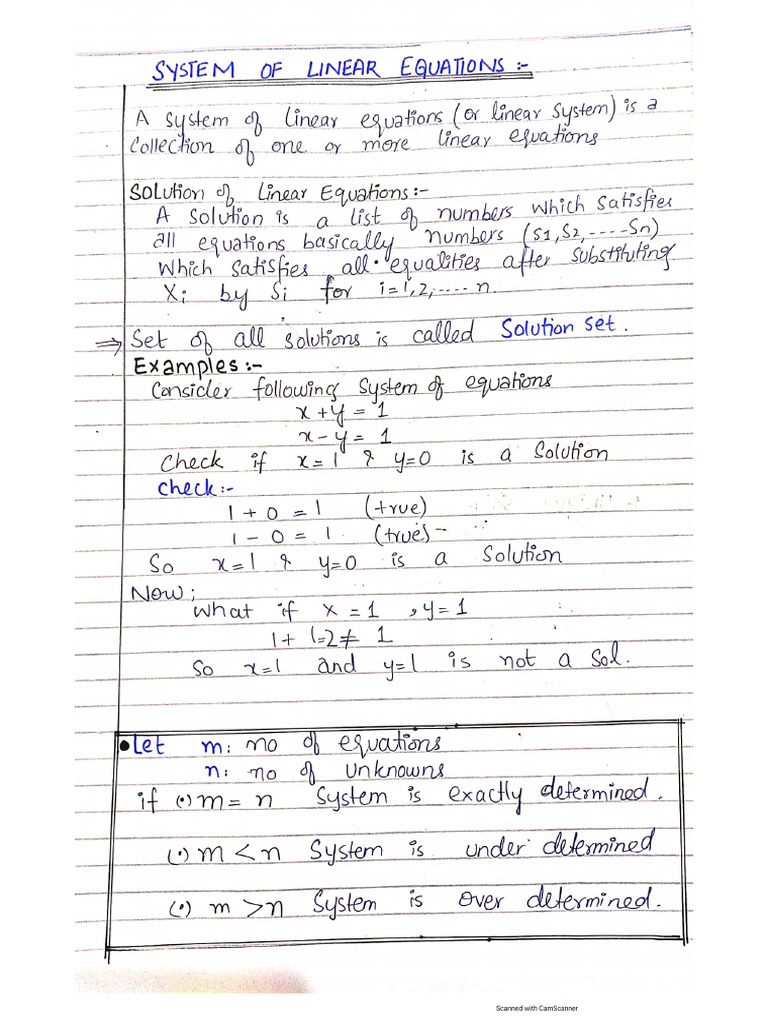 SYSTEM OF LINEAR EQUATIONS :-
A System of Linear equations (or linear System) is a
Collection of one or more linear equations
Solution of Linear Equations:-
A Solution is a list of numbers which satisfies
all equations basically numbers (S1, S2, ----Sn)
Which Satisfies all equalities after substituting
Xi by Si for i=1,2,.... n.
⇒ Set of all solutions is called Solution Set.
Examples:-
Consider following System of equations
x + y = 1
x - y = 1
Check if x=1 & y=0 is a Solution
Check:-
1 + 0 = 1 (true)
1 - 0 = 1 (true)
So x=1 & y=0 is a Solution
Now;
What if x = 1 , y=1
1+1=2≠ 1
So x=1 and y=1 is not a Sol.
•Let m: no of equations
n: no of unknowns
if (•) m = n System is exactly determined.
(•) m < n System is under determined
(•) m > n System is over determined.
Scanned with CamScanner